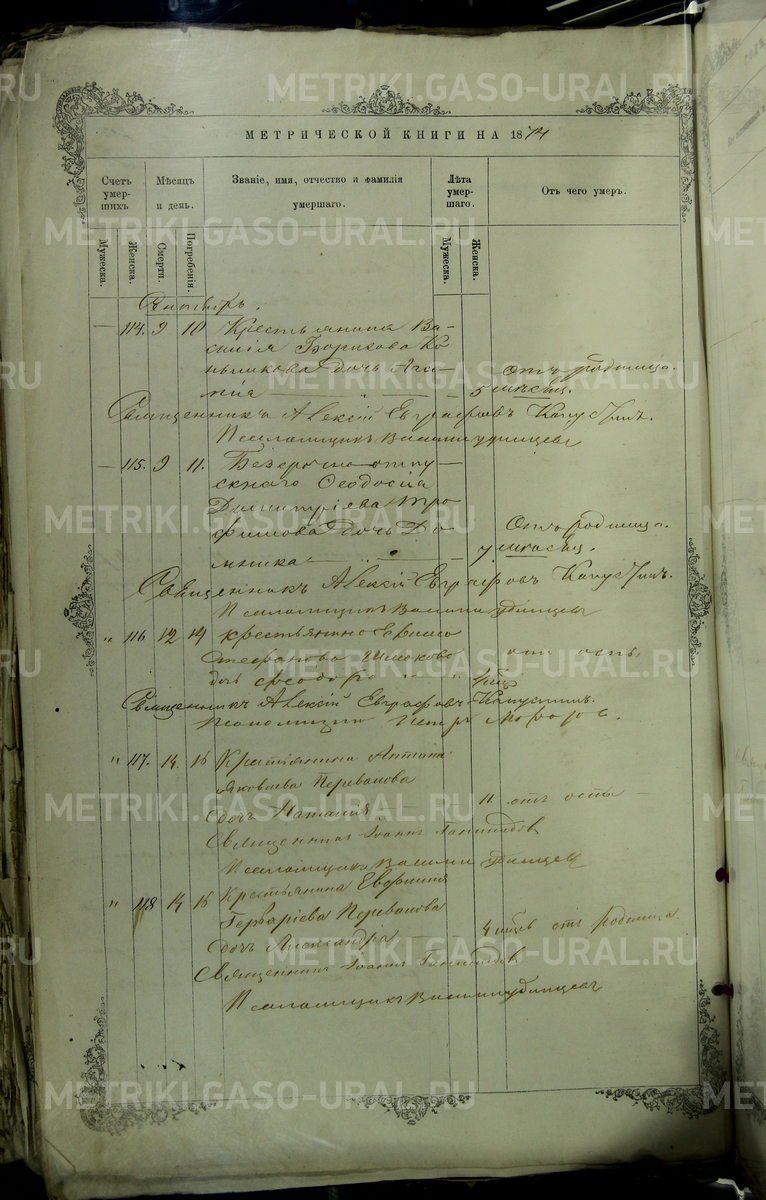 МЕТРИЧЕСКОЙ КНИГИ НА 1874
Счетъ умершихъ
Мѣсяцъ и день.
Званіе, имя, отчество и фамилія умершаго.
Лѣта умершаго.
Отъ чего умеръ.
Мужеска.
Женска.
Смерти.
Погребенія.
Мужеска.
Женска.
— 114. 9 10 Крестьянина Ва-
силія Борисова
дочь Ага-
отъ родимца.
5 мѣсяц.
Священникъ Алексій Евграфовъ Капустинъ.
Псаломщикъ Василій Удинцевъ
— 115. 9 11. Безсрочно отпу-
скнаго Ѳеодосія
Димитріева Тро-
фимова дочь До-
мника
Отъ родимца.
7 мѣсяц.
Священникъ Алексій Евграфовъ Капустинъ.
Псаломщикъ Василій Удинцевъ
" 116 12 14 крестьянина Ефима
Стефанова
дочь
отъ оспы
Священникъ Алексій Евграфовъ Капустинъ.
Петръ Морозов.
" 117. 14. 16 Крестьянина Антона
Яковлева Перевалова
дочь Наталія — 11 отъ оспы —
Священникъ Іоаннъ
Псаломщикъ Василій Удинцевъ
" 118 14 16 Крестьянина
Перевалова
дочь Александра
4 мѣсц отъ родимца.
Священникъ Іоаннъ
Псаломщикъ Василій Удинцевъ
METRIKI.GASO-URAL.RU